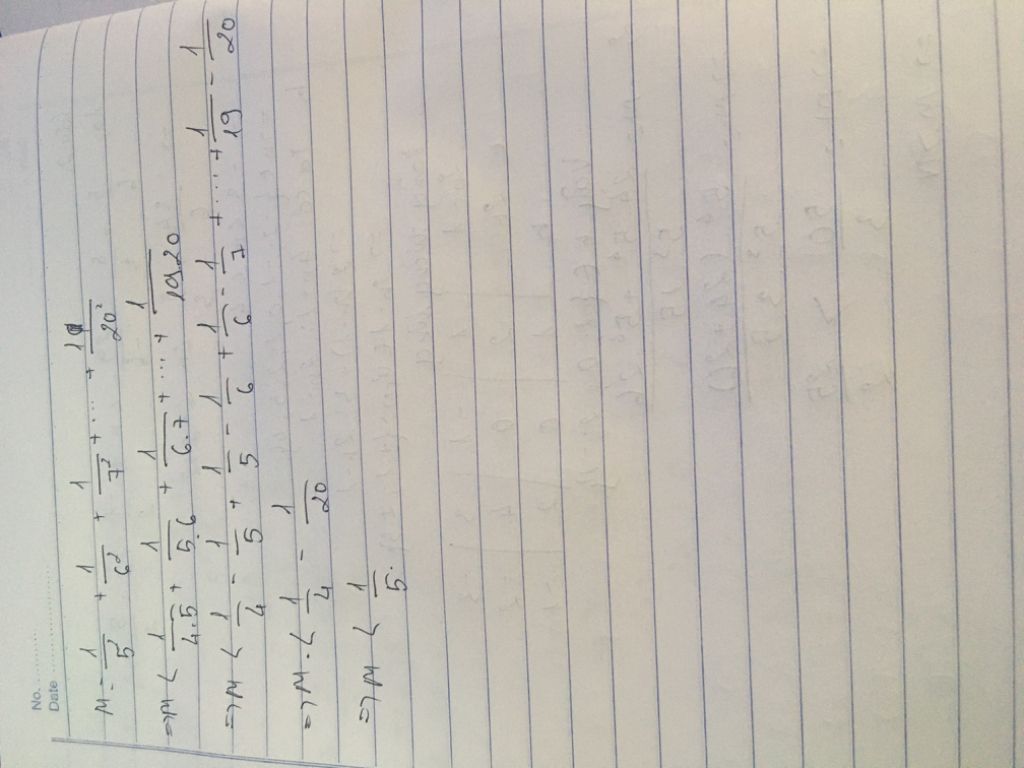 No. ...............
Date .........................
M = 1/5² + 1/6² + 1/7² + ... + 1/20²
=> M < 1/4.5 + 1/5.6 + 1/6.7 + .... + 1/19.20
=> M < 1/4 - 1/5 + 1/5 - 1/6 + 1/6 - 1/7 + .... + 1/19 - 1/20
=> M < 1/4 - 1/20
=> M < 1/5.